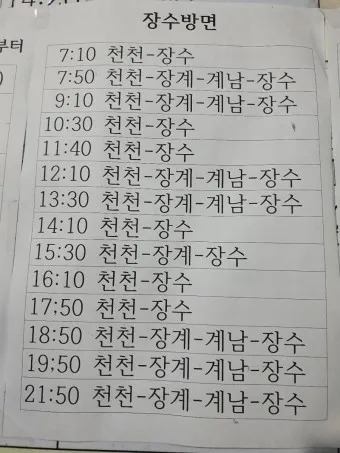 부터
장수방면
7:10 천천-장수
7:50 천천-장계-계남-장수
9:10 천천-장계-계남-장수
10:30 천천-장수
11:40 천천-장수
12:10 천천-장계-계남-장수
13:30 천천-장계-계남-장수
14:10 천천-장수
15:30 천천-장계-장수
16:10 천천-장수
17;50 천천-장수
18:50 천천-장계-계남-장수
19;50 천천-장계-계남-장수
21:50 천천-장계-계남-장수